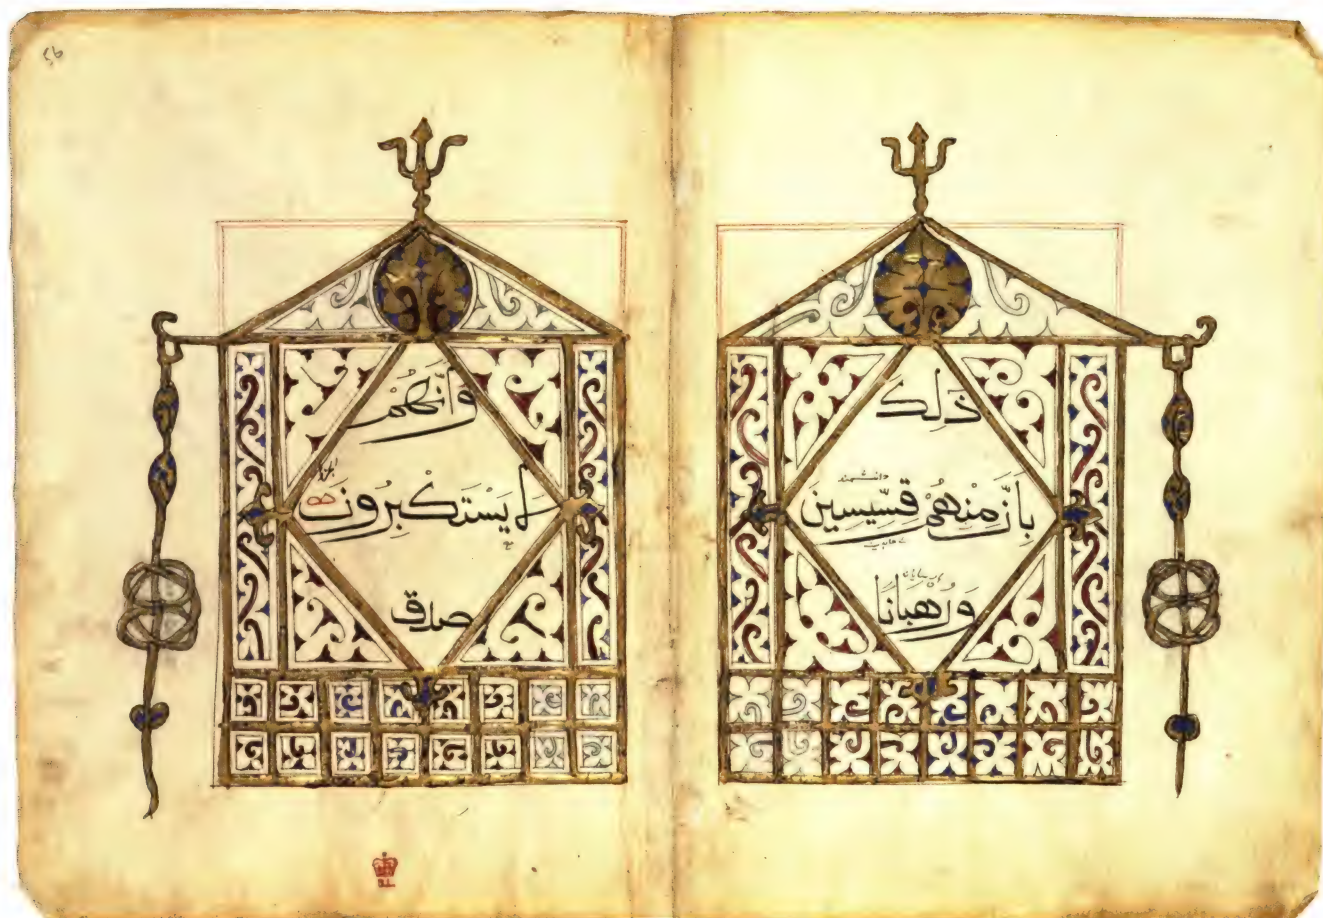 ذَلِكَ
بِأَنَّ مِنْهُمْ قِسِّيسِينَ
وَرُهْبَانًا
وَأَنَّهُمْ
لَا يَسْتَكْبِرُونَ
صدق
B.L.